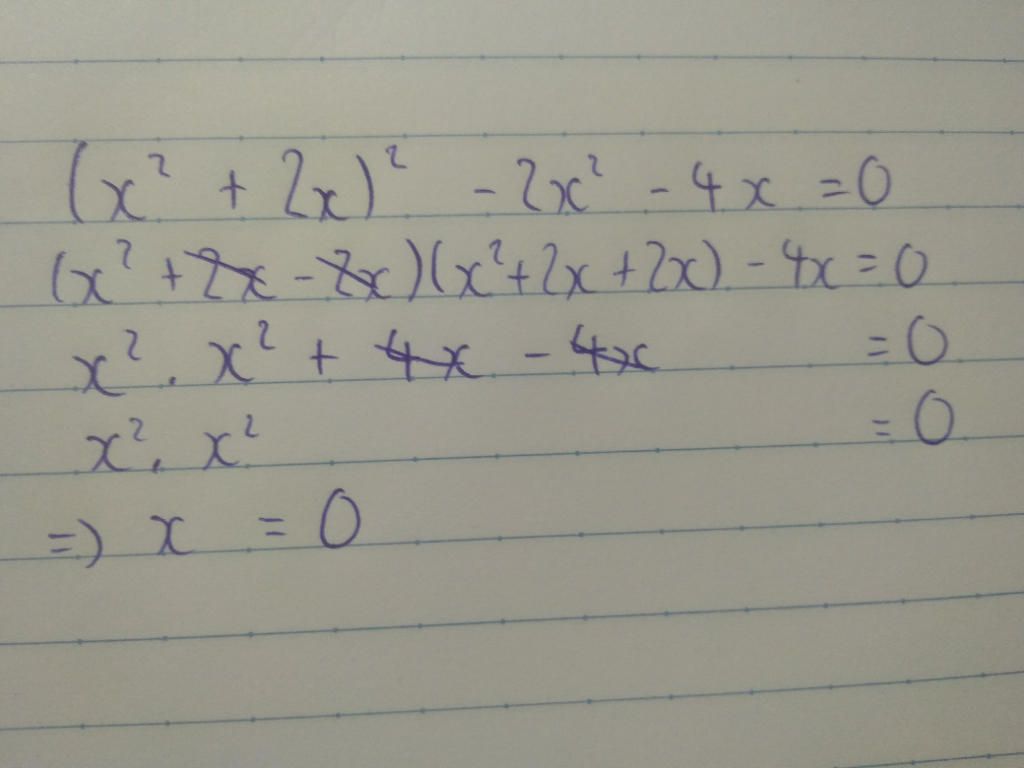 (x² + 2x)² - 2x² - 4x = 0
(x² + 2x - 2x)(x² + 2x + 2x) - 4x = 0
x² . x² + 4x - 4x = 0
x² . x² = 0
=> x = 0